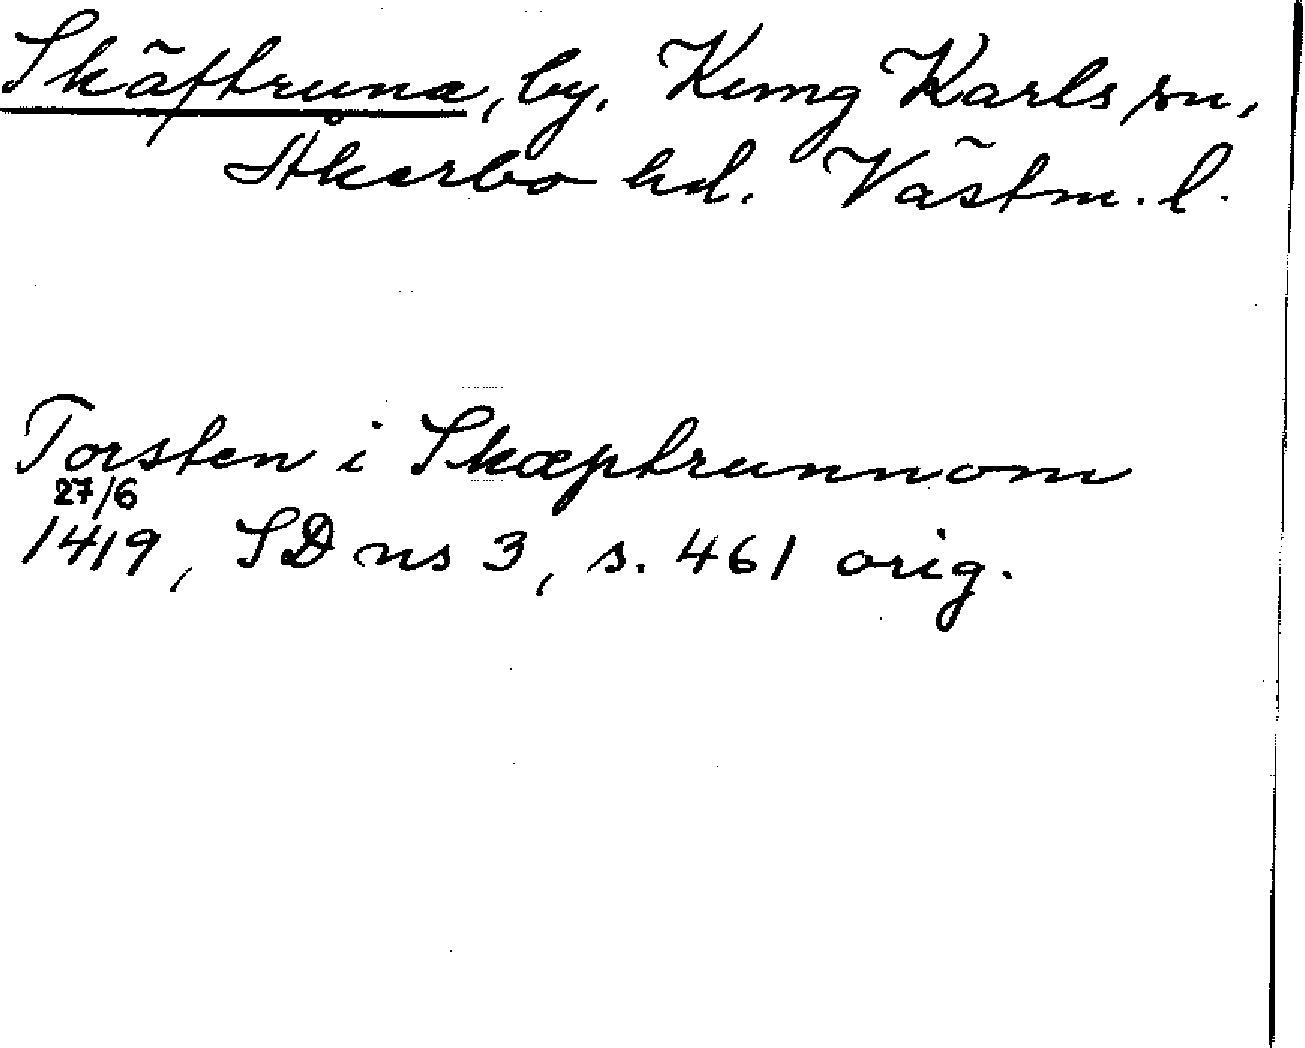 Skäftruna, by, Kung Karls sn,
Åkerbo hd. Västm. l.
Torsten i Skæptrunnom
27/6
1419, SD ns 3, s. 461 orig.